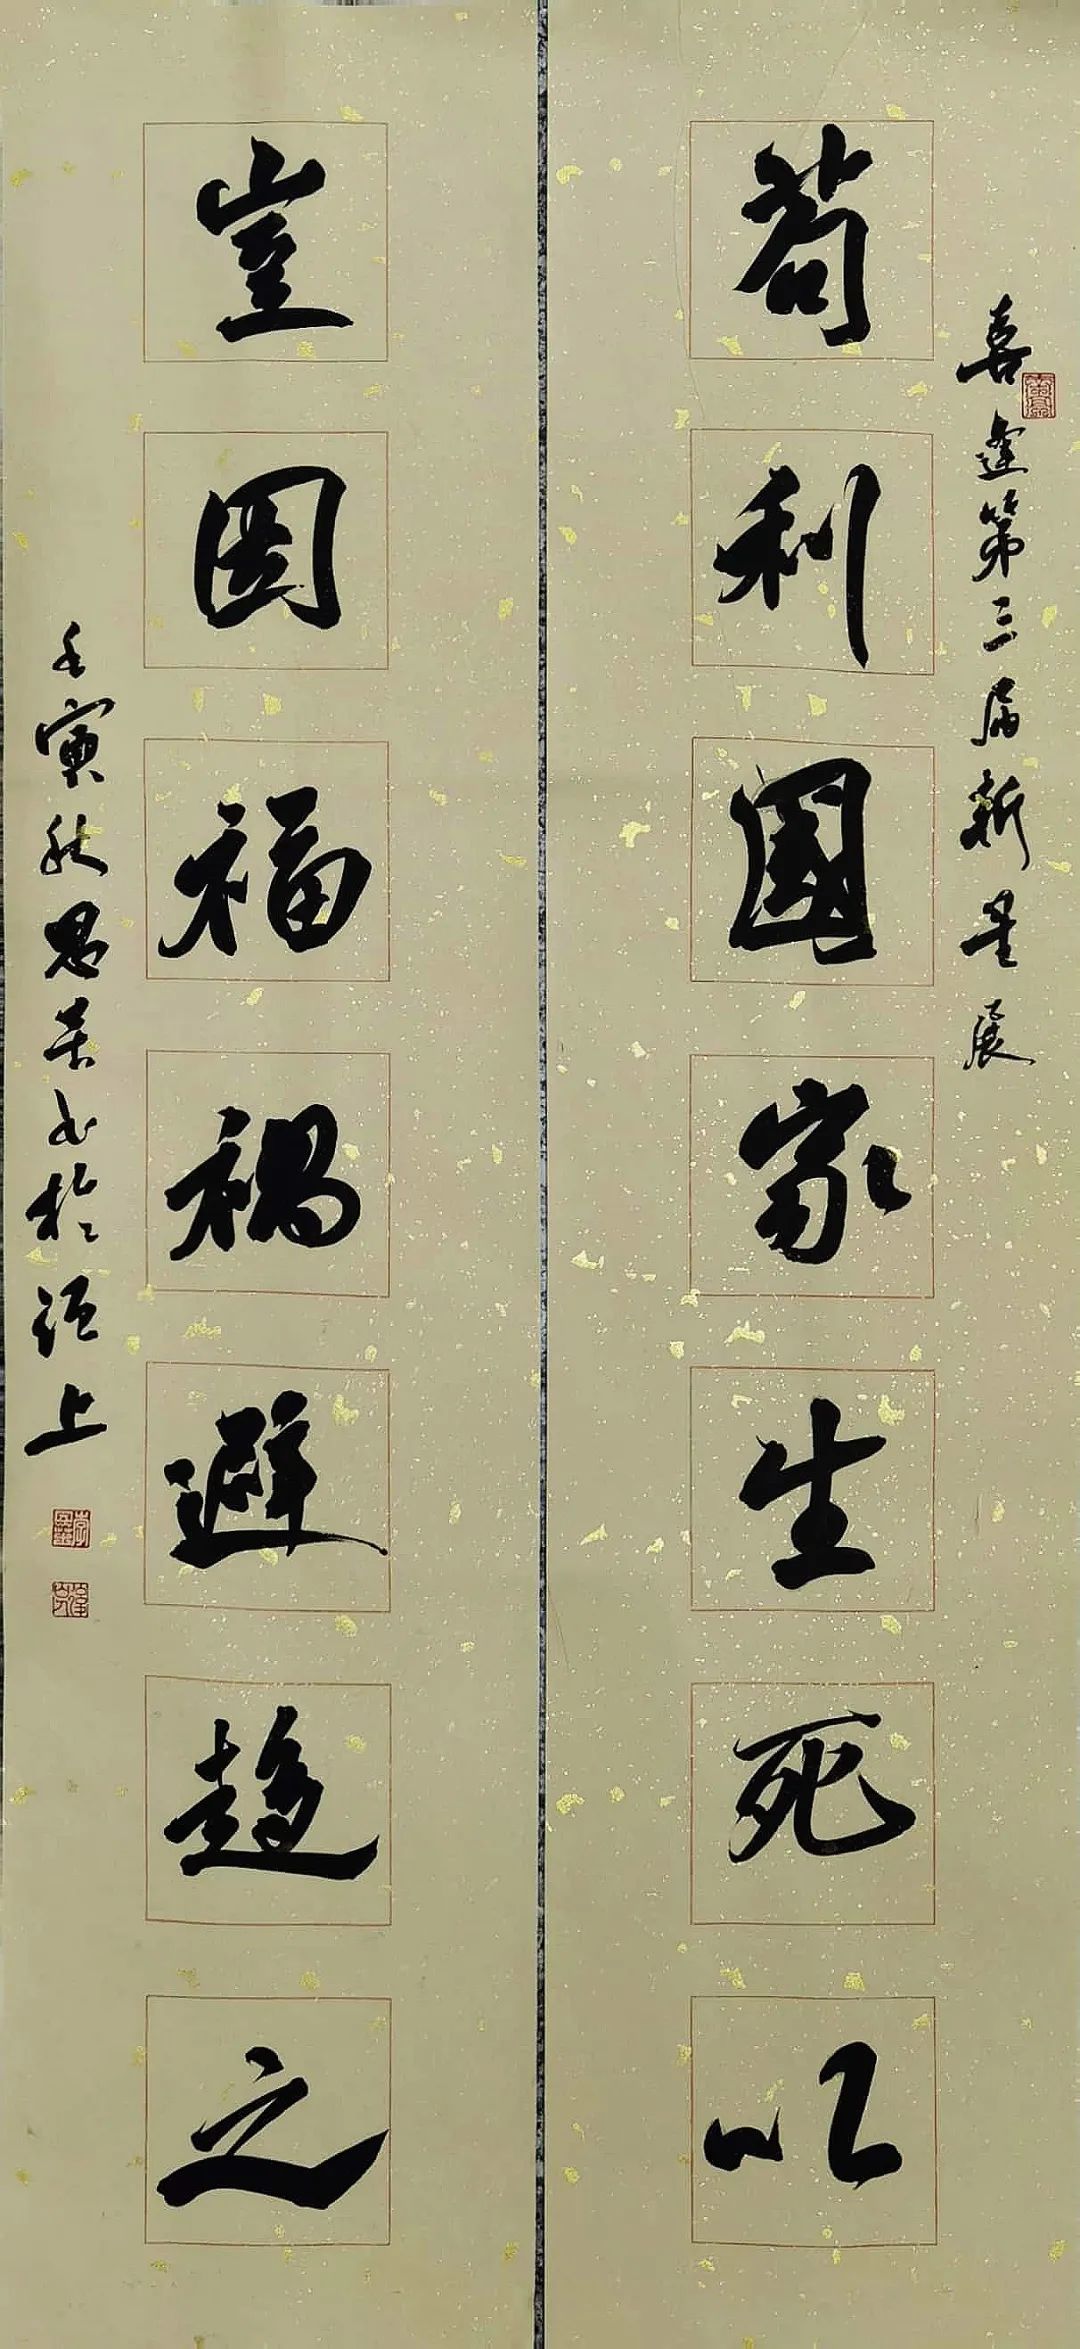 喜逢第三届新星展
苟利國家生死以
豈因福禍避趨之
壬寅秋思书於上